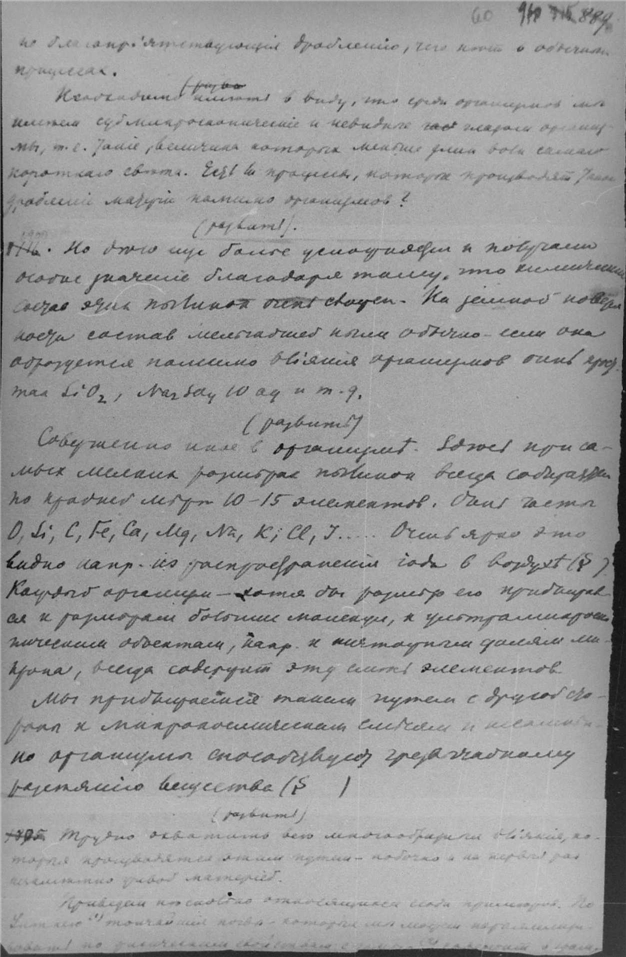 60 889
но благоприятствующия дроблению, чего нет в обычных
процессах.
Необходимо иметь в виду, что среди организмов мы
имеем субмикроскопические и невидные глазом организ-
мы, т.е. такие, величина которых меньше длин волн самаго
короткаго света. Есть ли процессы, которые производят такое
дробление материи помимо организмов?
(развить).
Но это еще более усложняется и получает
особое значение благодаря тому, что химический
состав этих пылинок очень сложен. На земной поверх
ности состав мельчайшей пыли обычно - если она
образуется помимо влияния организмов очень прос-
тая SiO2, Na2SO4 10 aq и т.д.
(развить)
Совершенно иное в организме. Здесь при са-
мых мелких размерах пылинки всегда собираются
по крайней мѣрѣ 10-15 элементов. Очень часты
O, Si, C, Fe, Ca, Mg, Na, K, Cl, J..... Очень ярко это
видно напр. из распространения иода в воздухѣ (§ )
Каждый организм - хотя бы размер его приближал-
ся к размерам больших молекул, к ультрамикроско-
пическим объектам, напр. к ничтожным долям ми-
крона, всегда содержит эту смесь элементов
Мы приближаемся таким путем с другой сто-
роны к микрокосмическим смесям и
но организмы способствуют чрезвычайному
вещества (§ )
(развить)
Трудно охватить все многообразие влияния, ко-
торыя производятся этим путем - побочно и на первый раз
живой материей.
Приведем несколько относящихся сюда примеров. По
тончайшия - которые мы можем